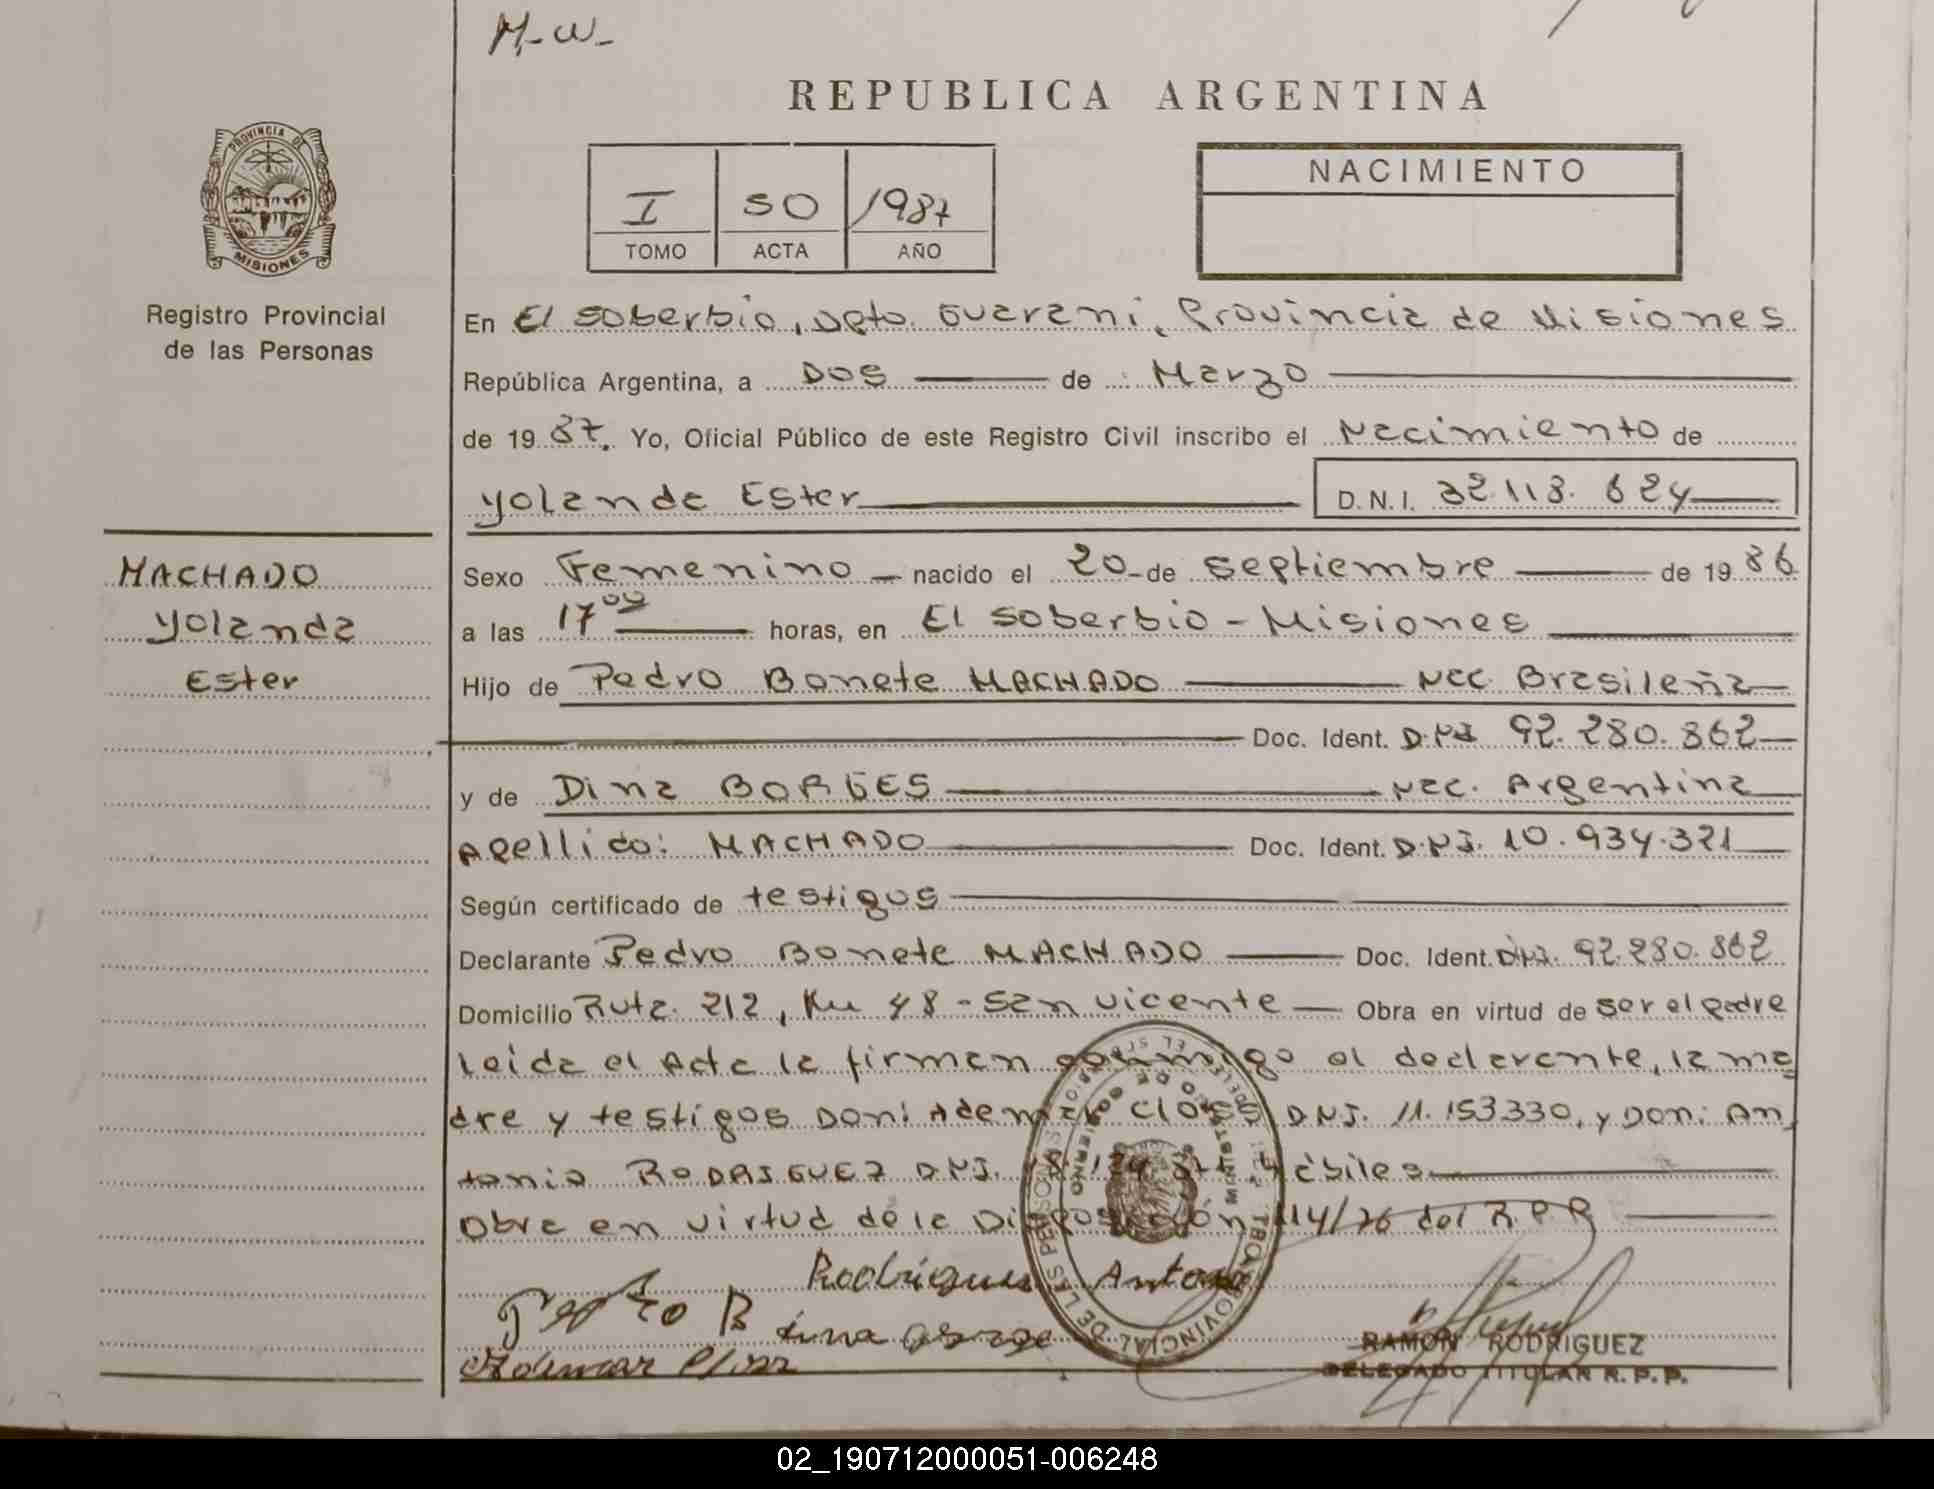 M-W-
REPUBLICA ARGENTINA
PROVINCIA DE
MISIONES
Registro Provincial
de las Personas
I SO 1987
TOMO ACTA AÑO
NACIMIENTO
En El Soberbio, Dpto. Guarani, Provincia de Misiones
República Argentina, a DOS de Marzo
de 19 87. Yo, Oficial Público de este Registro Civil inscribo el Nacimiento de
Yolanda Ester D.N.I. 32.118.624
MACHADO
Yolanda
Ester
Sexo Femenino nacido el 20 de Septiembre de 19 86
a las 17 00 horas, en El Soberbio - Misiones
Hijo de Pedro Bonete MACHADO Nac. Brasileña
Doc. Ident. D.N.I. 92.280.862
y de Dina BORGES Nac. Argentina
Apellido: MACHADO Doc. Ident. D.N.I. 10.934.321
Según certificado de testigos
Declarante Pedro Bonete MACHADO Doc. Ident. DNI. 92.280.862
Domicilio Ruta. 212, Km 48 - San Vicente Obra en virtud de ser el padre
Leida el Acta la firman conmigo el declarante, la ma
dre y testigos Don: Ademar CLOSS DNI. 11.153330, y Don: An
tonio RODRIGUEZ D.N.I. Hábiles
Obra en virtud de la Disposición 114/76 del R.P.P
Rodrigues Antonio
Pedro B
Ademar Closs
RAMON RODRIGUEZ
DELEGADO TITULAR R.P.P.
02_190712000051-006248